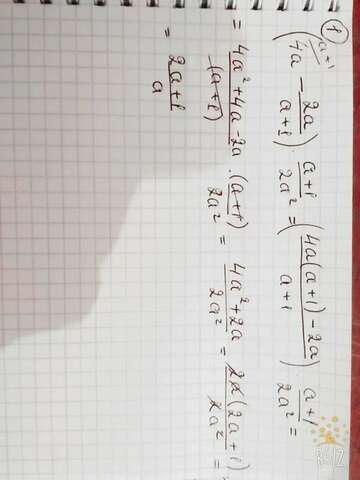 ① (4a^{a+1} - 2a/(a+1)) · (a+1)/2a² = ((4a(a+1)-2a)/(a+1)) · (a+1)/2a² =
= (4a²+4a-2a)/(a+1) · (a+1)/2a² = (4a²+2a)/2a² = 2a(2a+1)/2a² =
= (2a+1)/a